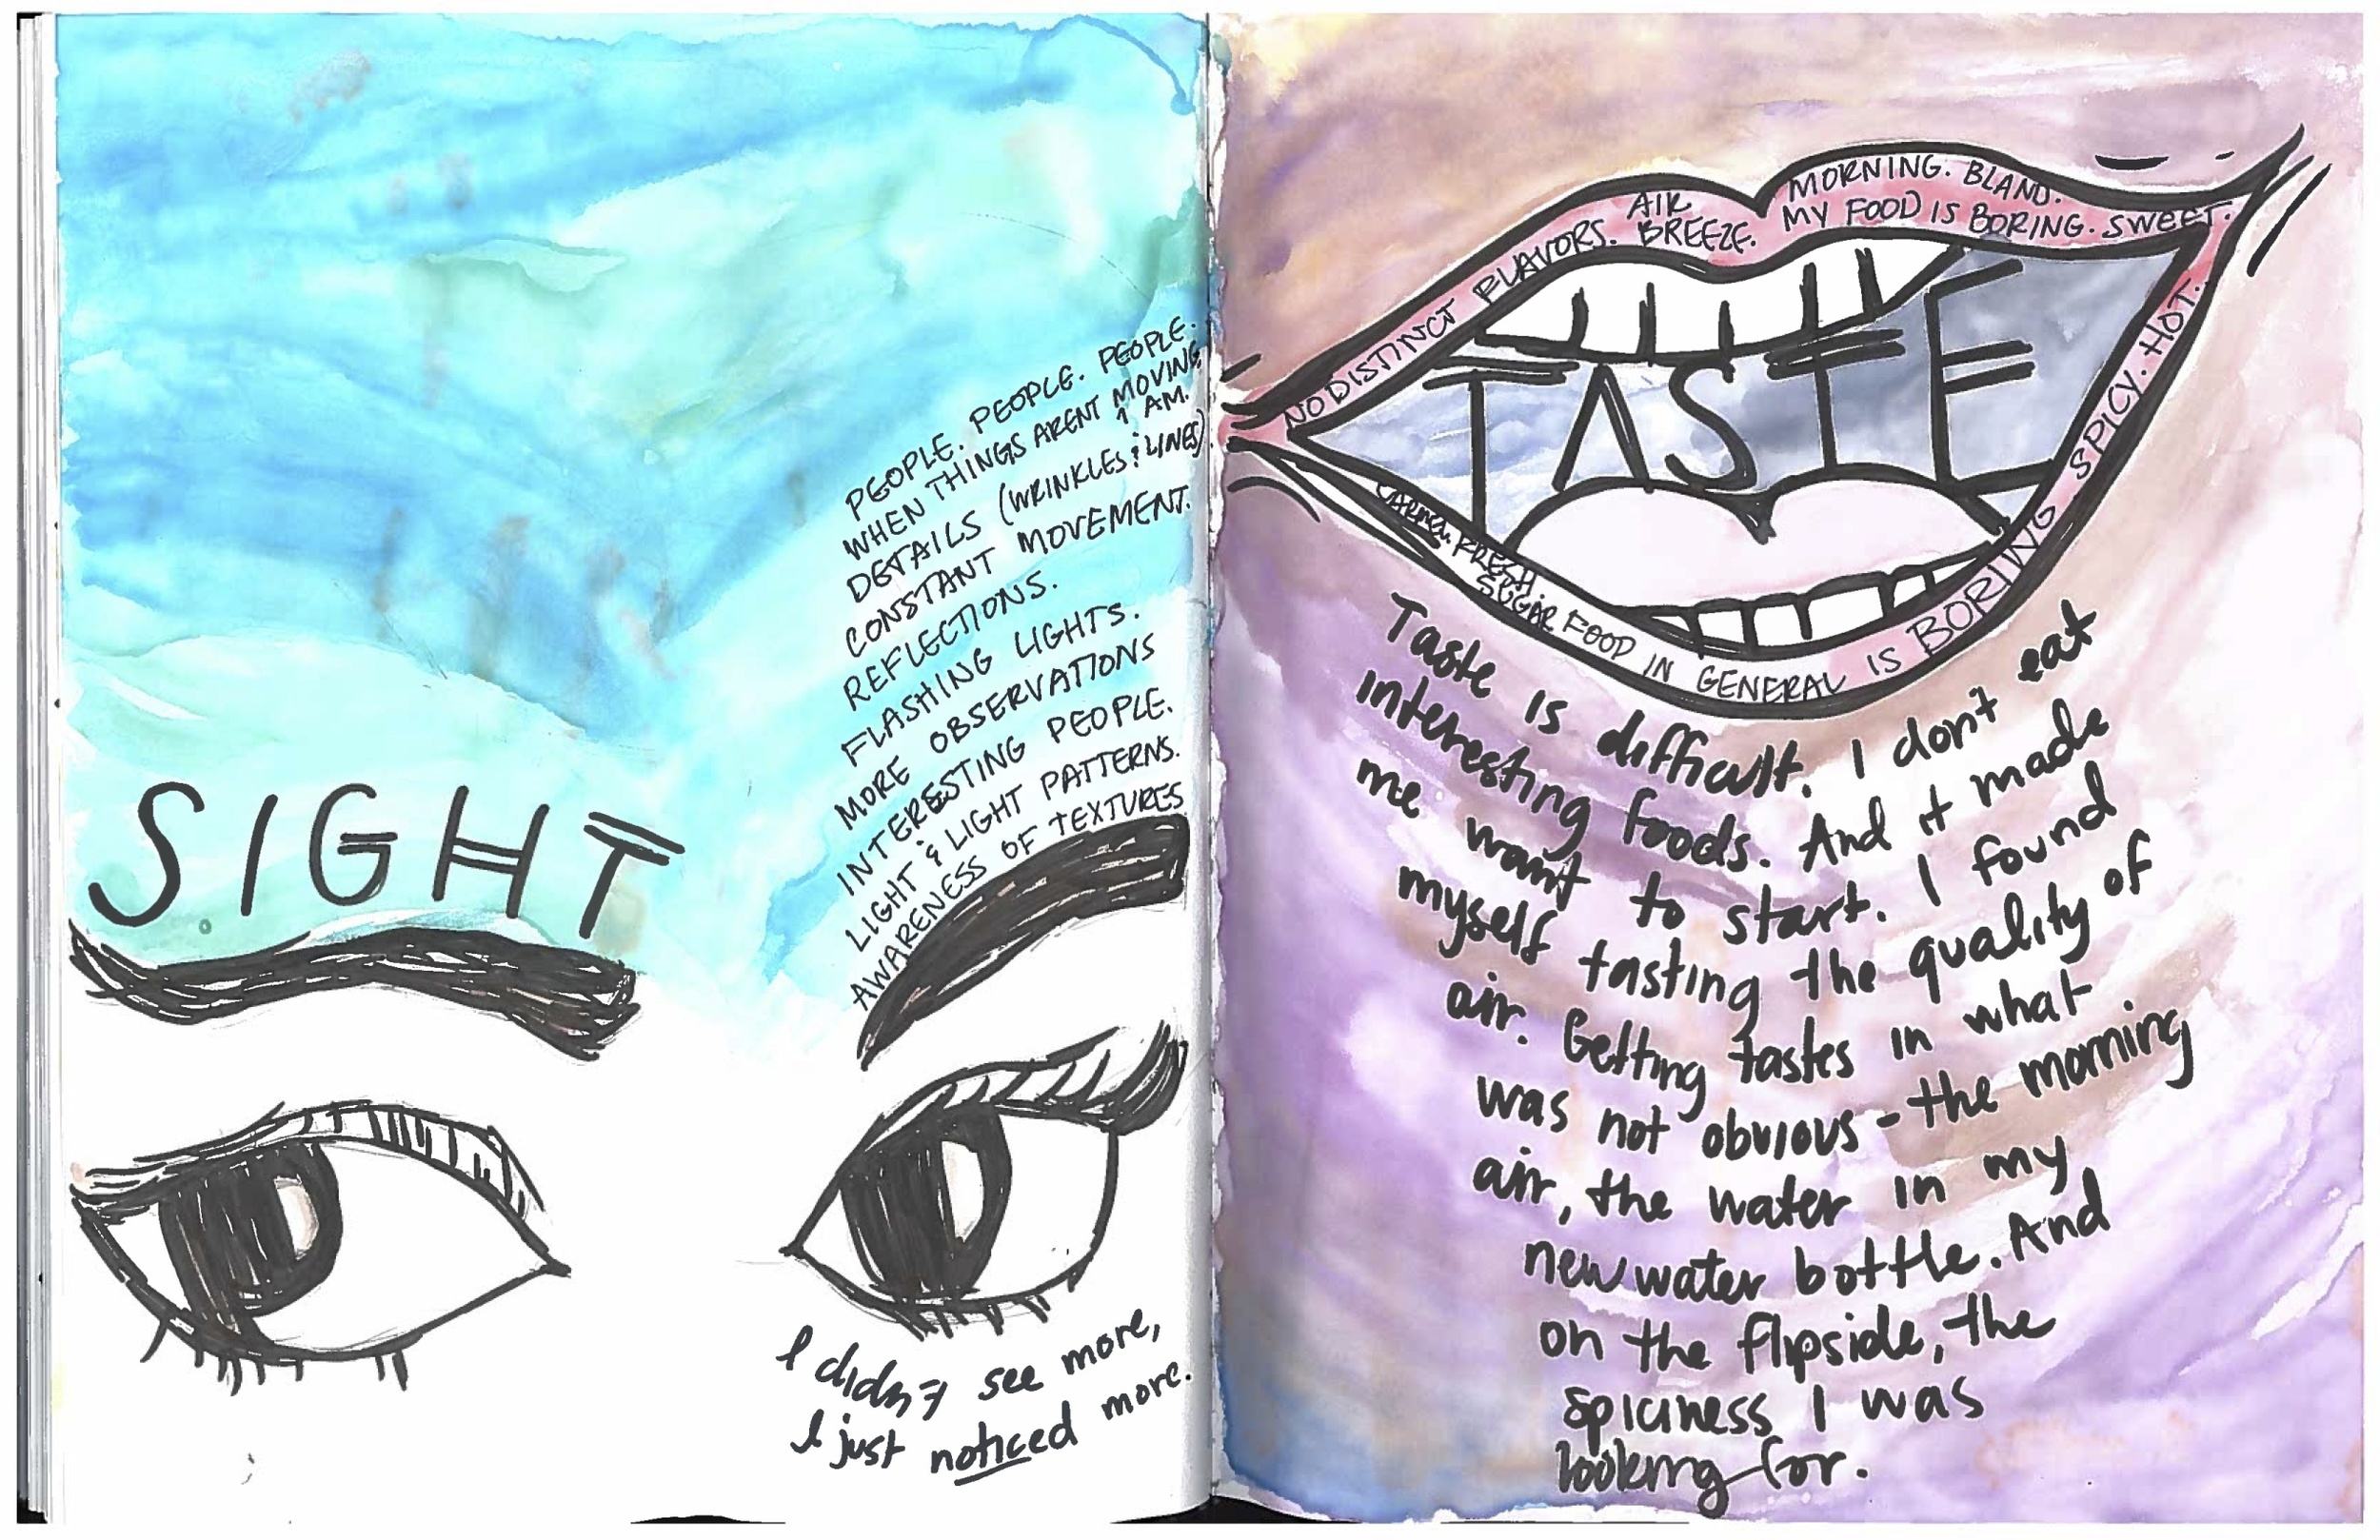 SIGHT
PEOPLE. PEOPLE. PEOPLE.
WHEN THINGS ARENT MOVING
I AM.
DETAILS (WRINKLES & LINES)
CONSTANT MOVEMENT.
REFLECTIONS.
FLASHING LIGHTS.
MORE OBSERVATIONS
INTERESTING PEOPLE.
LIGHT & LIGHT PATTERNS.
AWARENESS OF TEXTURES
I didn't see more,
I just noticed more.
NO DISTINCT FLAVORS. AIR
BREEZE.
MORNING. BLAND.
MY FOOD IS BORING. SWEET.
TASTE
FRESH.
SUGAR FOOD IN GENERAL IS BORING SPICY. HOT.
Taste is difficult. I don't eat
interesting foods. And it made
me want to start. I found
myself tasting the quality of
air. Getting tastes in what
was not obvious - the morning
air, the water in my
new water bottle. And
on the flipside, the
spiciness I was
looking for.